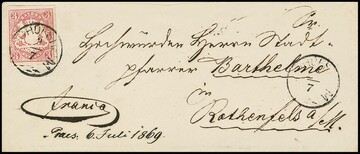 Sr.
Hochwürden Herrn Stadt-
pfarrer Barthelme
in
Rothenfels a/M.
franco
Praes. 6. Juli 1869.
7
7